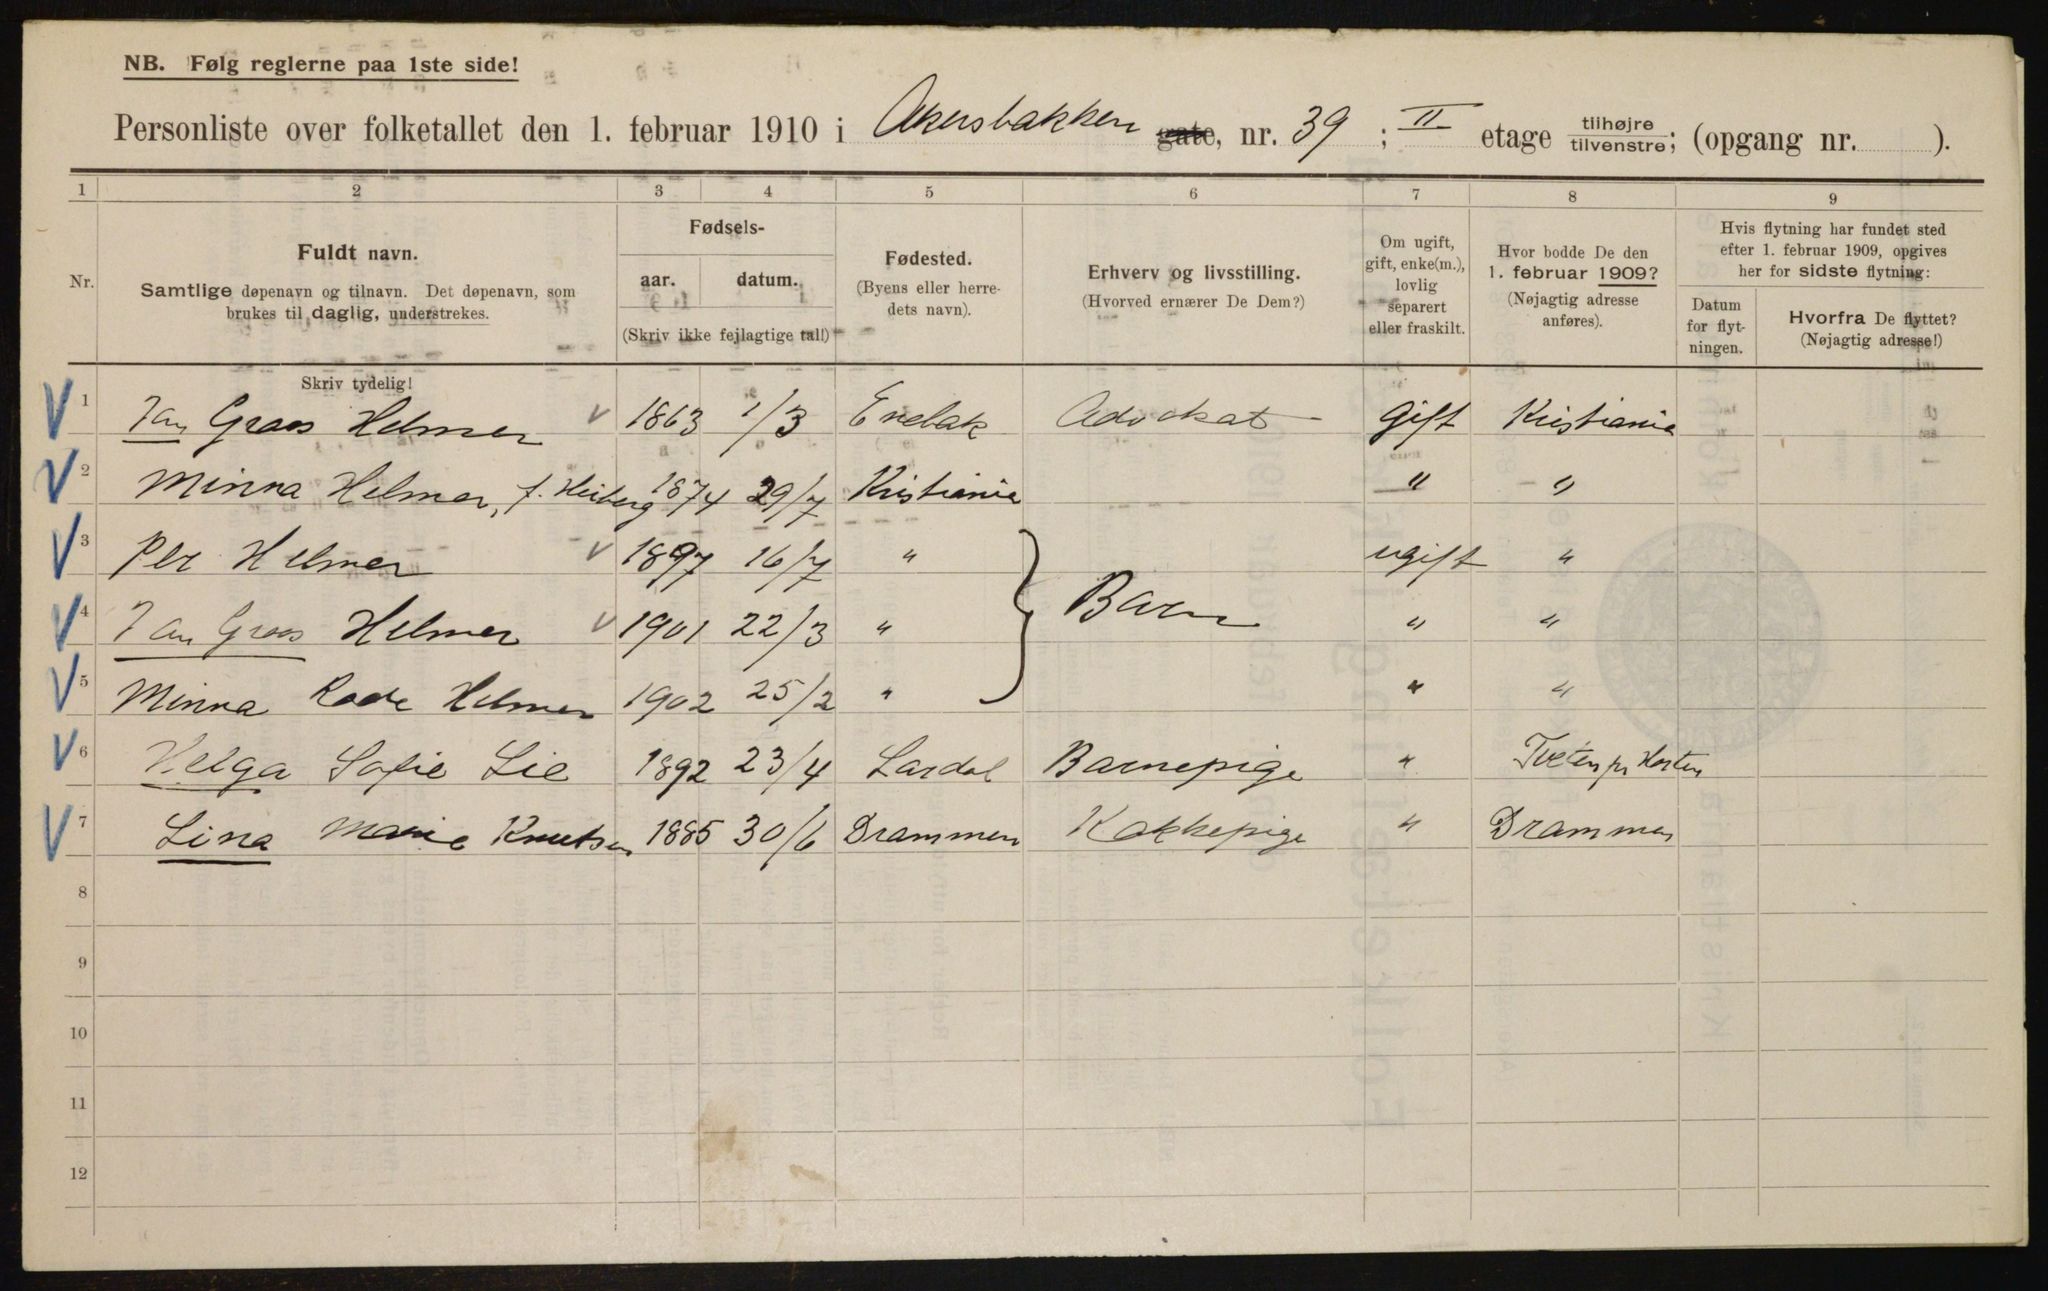 NB. Følg reglerne paa 1ste side!
Personliste over folketallet den 1. februar 1910 i Akersbakken gate, nr. 39 ; II etage tilhøjre tilvenstre; (opgang nr. ).
1 2 3 4 5 6 7 8 9
Nr.
Fuldt navn.
Samtlige døpenavn og tilnavn. Det døpenavn, som
brukes til daglig, understrekes.
Fødsels-
aar. datum.
(Skriv ikke fejlagtige tal!)
Fødested.
(Byens eller herre-
dets navn).
Erhverv og livsstilling.
(Hvorved ernærer De Dem?)
Om ugift,
gift, enke(m.),
lovlig
separert
eller fraskilt.
Hvor bodde De den
1. februar 1909?
(Nøjagtig adresse
anføres).
Hvis flytning har fundet sted
efter 1. februar 1909, opgives
her for sidste flytning:
Datum
for flyt-
ningen.
Hvorfra De flyttet?
(Nøjagtig adresse!)
Skriv tydelig!
1 Jan Graos Helmer 1863 1/3 Enebak Advokat Gift Kristiania
2 Minna Helmer, f. Heiberg 1874 29/7 Kristiania " "
3 Per Helmer 1897 16/7 " Barn ugift "
4 Jan Graos Helmer 1901 22/3 " " "
5 Minna Rode Helmer 1902 25/2 " " "
6 Helga Sofie Lie 1892 23/4 Lardal Barnepige " Tveten pr Horten
7 Lina Marie Knutsen 1885 30/6 Drammen Kokkepige " Drammen
8
9
10
11
12